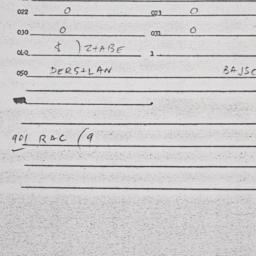 022 0 023 0
030 0 031 0
040 $ ) Z+ABE
050 DERS+LAN BAJSC
901 RAC (9